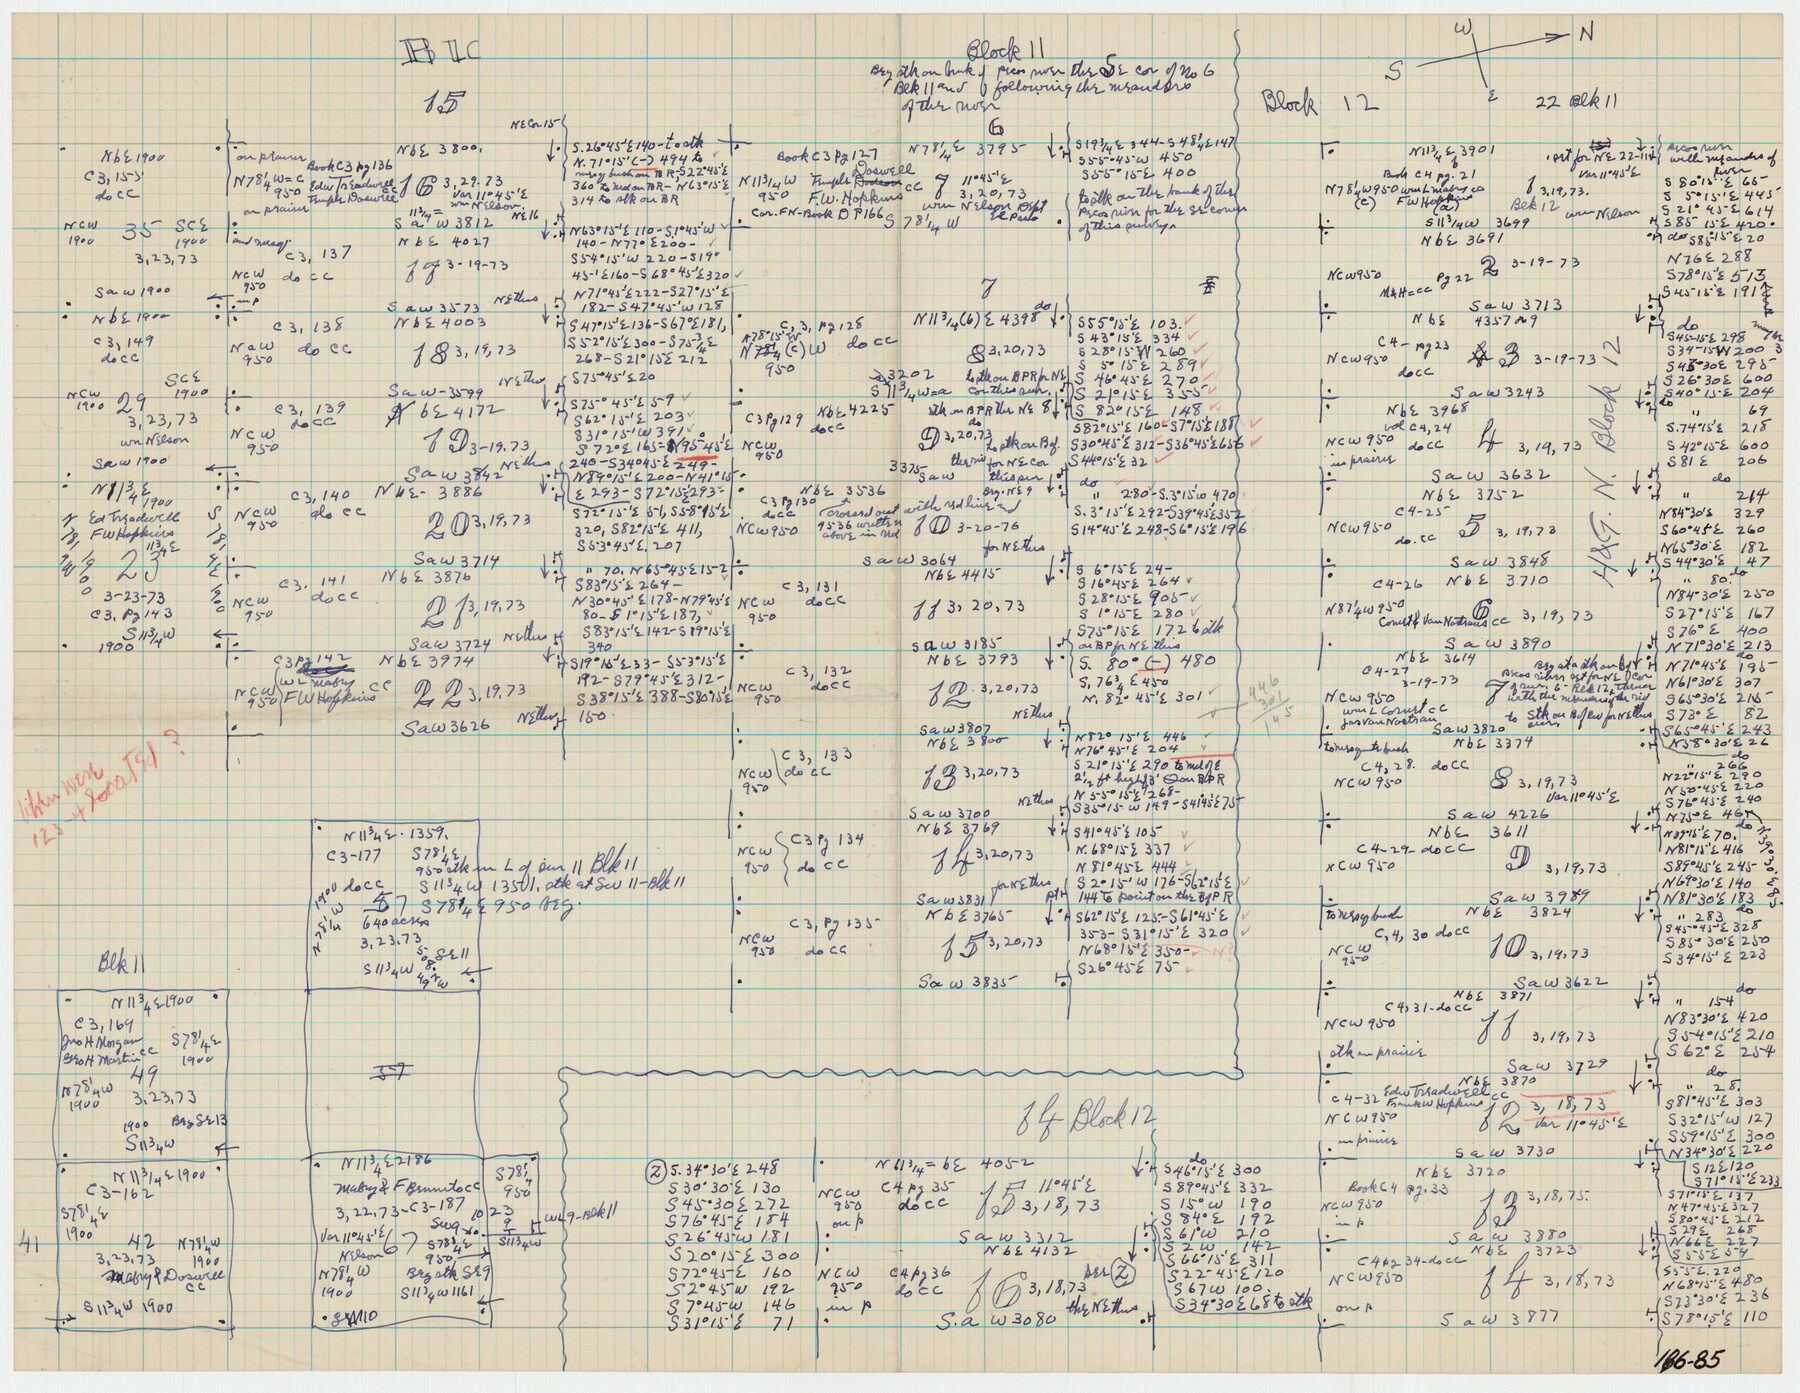 B 1C
15
NE Cor 15
Nb E 1900
C3, 155
do CC
on prairie
Book C3 pg 136
Edw Treadwell
Temple Doswell
N78¼W=C
950
on prairie
Nb E 3800,
16 3,29.73
Var 11°45'E
wm Nelson
11¾=
S a w 3812
NE 16
S.26°45'E 140 - to stk
N.71°15'(-) 494 to
360 to md on BR - N63°15'E
314 to stk on BR
NCW
1900
35
SCE
1900
3,23,73
Saw 1900
Nb E 4027
C3, 137
NCW
950
do CC
17 3-19-73
Saw 3573
NE thus
N63°15'E 110 - S1°45'W
140 - N77°E 200 -
S54°15'W 220 - S19°
45'E 160 - S68°45'E 320
N71°45'E 222 - S27°15'E
182 - S47°45'W 128
Nb E 1900
C3, 149
do CC
C3, 138
Nb E 4003
NaW
950
do CC
18 3,19,73
Saw - 3599
NE thus
S47°15'E 136 - S67°E 181,
S52°15'E 300 - S75¾E
268 - S21°15'E 212
S75°45'E 20
NCW
1900
29
SCE
1900
3,23,73
wm Nelson
Saw 1900
C3, 139
NbE 4172
NCW
950
do CC
19 3-19,73
Saw 3842
NE thus
S75°45'E 59
S62°15'E 203
S31°15'W 391
S72°E 165 - N95°45'E
240 - S34°45'E 249 -
N11¾E
1900
Ed Treadwell
FW Hopkins
11¾E
23
3-23-73
C3, pg 143
S11¾W
1900
C3, 140
NbE - 3886
NCW
950
do CC
20 3,19,73
Saw 3714
N89°15'E 200 - N41°15'
E 293 - S72°15'E 293 -
S72°15'E 51, S58°15'E
320, S82°15'E 411,
S53°45'E, 207
C3, 141
NbE 3876
NCW
950
do CC
21 3,19,73
Saw 3724
NE thus
" 70. N65°45'E 152
S83°15'E 264 -
N30°45'E 178 - N79°45'E
80 - S1°15'E 187,
S83°15'E 142 - S89°15'E
340
C3 pg 142
NbE 3974
WL Mabry
FW Hopkins
CC
NCW
950
22 3,19,73
Saw 3626
NE thus
S19°15'E 33 - S53°15'E
192 - S79°45'E 312 -
S38°15'E 388 - S80°15'E
150
When were
123-4 located?
N11¾E - 1359.
C3-177
S78¼E
950 stk in L of sur 11 Blk 11
do CC
1900
S11¾W 1350 1. stk at SW 11 - Blk 11
57
S78¼E 950 beg.
N78¼W
640 acres
3,23,73
50 SE 11
S11¾W
57
Blk 11
N11¾E 1900
C3, 169
Jno H Morgan
Geo H Martin CC
S78¼E
1900
49
N78¼W
1900
3,23,73
1900 Beg SE 13
S11¾W
N11¾E 1900
C3-162
S78¼E
1900
41
42
N78¼W
1900
3,23,73
Mabry & Doswell
CC
S11¾W 1900
N11¾E 2186
Mabry & F Brunit do CC
S78¼
950
3,22,73 - C3-187
Var 11°45'E
Nelson
67
S78¼E
950
S11¾W
WL 9 - Blk 11
N78¼W
1900
Beg stk SE 9
S11¾W 1161
SW 10
Block 11
Beg stk on bank of pecos river the SE cor of no 6
Blk 11 and following the meanders
of the river
6
Book C3 pg 127
N78¼E 3795
N11¾W
950
Temple Doswell CC
F.W. Hopkins
7 11°45'E
3,20,73
wm Nelson Dept
El Paso
Cor. FN - Book D P166
S 78¼W
S19¾E 344 - S48¼E 147
S55°45'W 450
S55°45'E 400
to stk on the bank of the
Pecos river for the SE corner
of this survey
7
do
C, 3, pg 128
N11¾(6)E 4398
N78°15'W
N78¼(c)W
950
do CC
8 3,20,73
3202
S11¾W=a
to stk on BPR for NE
cor this sur.
S55°15'E 103.
S43°15'E 334
S28°15'W 260
S 5°15'E 289
S 46°45'E 270
S 21°15'E 355
S 82°15'E 148
C3 pg 129
NbE 4225
stk on BPR the NE 8
do CC
NCW
950
9 3,20,73
3375
Saw
S82°15'E 160 - S7°15'E 188
S30°45'E 312 - S36°45'E 656
S44°15'E 32
C3 pg 130
NbE 3536
crossed out with red line and
4536 written
above in red
do CC
NCW 950
10 3-20-76
for NE thus
Saw 3064
do
" 280 - S.3°15'W 470
S.3°15'E 292 - S39°45'E 352
S14°45'E 248 - S6°15'E 196
NbE 4415
C3, 131
NCW
950
do CC
11 3,20,73
Saw 3185
S 6°15'E 24 -
S16°45'E 264
S28°15'E 905
S 1°15'E 280
S75°15'E 172 to stk
on BP for NE thus
NbE 3793
C3, 132
NCW
950
do CC
12 3,20,73
NE thus
Saw 3807
S. 80° (-) 480
S, 76¾E 450
N, 82°45'E 301
446
301
145
NbE 3800
C3, 133
NCW
950
do CC
13 3,20,73
NE thus
Saw 3700
N82°15'E 446
N76°45'E 204
S21°15'E 290 to md of E
2½ ft high & 3' on BPR
N 55°15'E 268 -
S35°15'W 149 - S41°45'E 75 -
NbE 3769
C3 pg 134
NCW
950
do CC
14 3,20,73
for NE thus
Saw 3831
S41°45'E 105
N.68°15'E 337
N81°45'E 444
S2°15'W 176 - S62°15'E
144 to point on the B of PR
NbE 3765
C3, pg 135
NCW
950
do CC
15 3,20,73
Saw 3835
S62°15'E 125 - S61°45'E
353 - S31°15'E 320
N68°15'E 350 -
N?
S26°45'E 75 -
14 Block 12
②
S.34°30'E 248
S30°30'E 130
S45°30'E 272
S76°45'E 184
S26°45'W 181
S20°15'E 300
S72°45'E 160
S2°45'W 192
S7°45'W 146
S31°15'E 71
N11¾=bE 4052
NCW
950
on p
C4 pg 35
do CC
15 11°45'E
3,18,73
Saw 3312
NbE 4132
NCW
950
in p
C4 pg 36
do CC
16 3,18,73
see ②
the NE thus
S.a W 3080
do
S46°15'E 300
S89°45'E 332
S 15°W 190
S 84°E 192
S 61°W 210
S 2 W 142
S66°15'E 311
S22°45'E 120
S 67 W 100.
S34°30'E 68 to stk
W
N
S
E
Block 12
22 Blk 11
N11¾E 3901
Book C4 pg. 21
est for NE 22-11
Var 11°45'E
N78¼W 950
wm L Mabry CC
FW Hopkins
1 3,19,73.
Blk 12
wm Nelson
S11¾W 3699
Pecos river
with meanders of
river
S 80°15'E 65
S 5°15'E 445
S 21°45'E 614
S 85°15'E 420
NbE 3691
NCW 950
pg 22
2 3-19-73
M&H=CC
Saw 3713
do S85°15'E 20
N76E 288
S78°15'E 513
S45°15'E 191
NbE 4357 or 9
C4 - pg 23
NCW 950
do CC
3 3-19-73
Saw 3243
do
S45°15'E 298
S34°15'W 200
S45°30'E 295
S26°30'E 600
S40°15'E 204
NbE 3968
vol C4, 24
NCW 950
do CC
in prairie
4 3,19,73
Saw 3632
do
" 69
S.74°15'E 218
S42°15'E 600
S81E 206
H&G.N. Block 12
NbE 3752
C4-25
NCW 950
do. CC
5 3,19,73
Saw 3848
do
" 214
N84°30'E 329
S60°45'E 260
N65°30'E 182
S44°30'E 47
C4-26
NbE 3710
N87¼W 950
Conust & Van Nostrans CC
6 3,19,73
Saw 3890
do
" 80.
N84°30'E 250
S27°15'E 167
S76°E 400
N71°30'E 213
NbE 3614
C4-27
3-19-73
7
NCW 950
wm L Conust CC
Jas Van Nostran
to Stk on B of river for NE thus
Saw 3820
do
N71°45'E 195
N61°30'E 307
S65°30'E 215
S73°E 82
S65°45'E 243
N58°30'E 26
to mesquite bush
NbE 3374
C4, 28. do CC
NCW 950
8 3,19,73
Var 11°45'E
Saw 4226
do
" 266
N22°15'E 290
N50°45'E 220
S76°45'E 240
N75°E 46
NbE 3611
C4-29 - do CC
NCW 950
9 3,19,73
Saw 3989
N39°15'E 70.
do
N81°15'E 416
S89°45'E 245
N69°30'E 140
N81°30'E 183
to mesq bush
NbE 3824
C, 4, 30 do CC
NCW
950
10 3,19,73
Saw 3622
do
" 283
S45°45'E 328
S85°30'E 250
S34°15'E 223
NbE 3871
C4, 31 - do CC
NCW 950
11 3,19,73
stk on prairie
Saw 3729
do
" 154
N83°30'E 420
S54°15'E 210
S62°E 254
NbE 3870
C4-32
Edw Treadwell CC
Frank W Hopkins
NCW 950
12 3,18,73
Var 11°45'E
in prairie
Saw 3730
do
" 28.
S81°45'E 303
S32°15'W 127
S59°15'E 300
N34°30'E 220
S12E 120
S71°15'E 233
NbE 3720
Book C4 pg. 33
NCW 950
in p
13 3,18,75.
Saw 3880
S71°15'E 137
N47°45'E 327
S80°45'E 212
S29E 268
N66E 227
S55E 54
NbE 3723
C4 pg 34 - do CC
NCW 950
14 3,18,73
on p
Saw 3877
S55E 220
N68°15'E 480
S73°30'E 236
S78°15'E 110
186-85